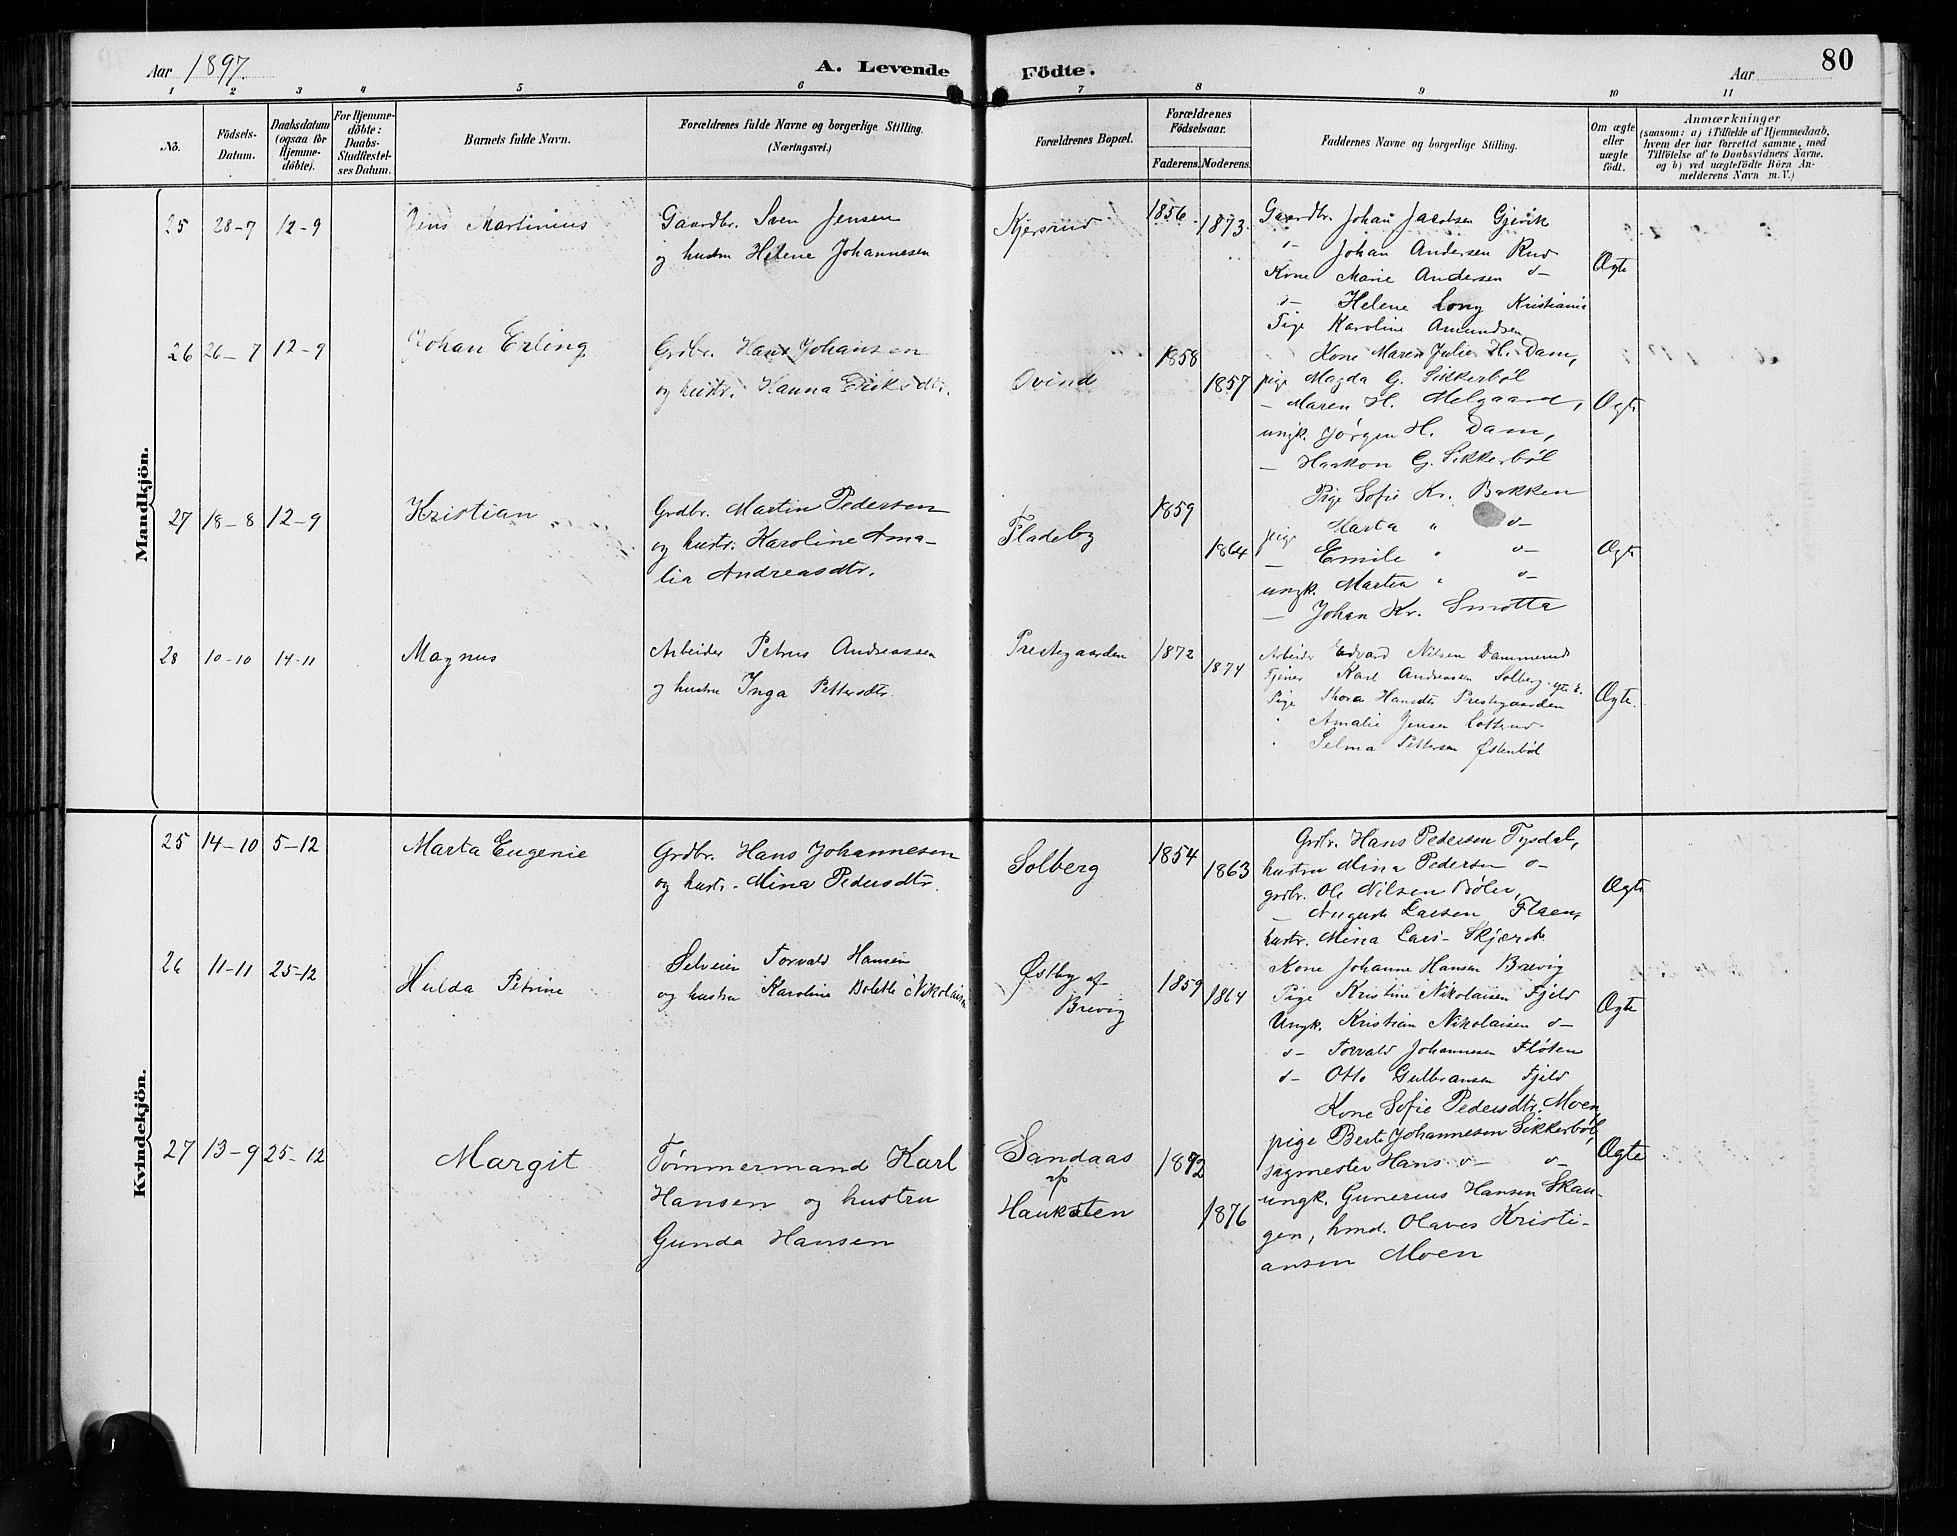 Aar 1897.
A. Levende Födte.
Aar
80
1 2 3 4 5 6 7 8 9 10 11
No.
Födsels-Datum.
Daabsdatum (ogsaa for Hjemme-døbte).
For Hjemme-døbte: Daabs-Stadfæstel-ses Datum.
Barnets fulde Navn.
Forældrenes fulde Navne og borgerlige Stilling.
(Næringsvei.)
Forældrenes Bopæl.
Forældrenes Födselsaar.
Faderens. Moderens.
Faddernes Navne og borgerlige Stilling.
Om ægte eller uægte födt.
Anmærkninger
(saasom: a) i Tilfælde af Hjemmedaab,
hvem der har forrettet samme, med
Tilföielse af to Daabsvidners Navne,
og b) ved uægtefödte Börn An-
melderens Navn m. V.)
Mandkjön.
25 28-7 12-9 Jens Martinius
Gaardbr. Sven Jensen
og hustru Helene Johannesen
Kjersrud 1856 1873
Gaardbr. Johan Jacobsen Gjevik
" Johan Andersen Rud
Kone Marie Andersen d-
d- Helene Long Kristiania
Pige Karoline Amundsen
Ægte
26 26-7 12-9 Johan Erling
Grdbr. Hans Johansen
og hustr. Hanna Eriksdtr.
Ovind 1858 1857
Kone Maren Julie H. Dam,
pige Magda G. Sikkerbøl
- Maren H. Melgaard,
ungk. Jørgen H. Dam,
- Haakon G. Sikkerbøl
Ægte
27 18-8 12-9 Kristian
Grdbr. Martin Pedersen
og hustr. Karoline Ama-
lia Andreasdtr.
Fladeby 1859 1864
Pige Sofie Kr. Bakken
pige Marta " d-
- Emile " d-
ungk. Martin " d-
- Johan Kr. Smotta
Ægte
28 10-10 14-11 Magnus
Arbeider Petrus Andreassen
og hustru Inga Pettersdtr.
Prestegaarden 1872 1874
Arbeider Edvard Nilsen Dammerud
Tjener Karl Andreassen Solberg
Pige Thora Hansdtr Prestegaarden
" Amalie Jensen
" Selma Pettersen Østenbøl
Ægte.
Kvindekjön.
25 14-10 5-12 Marta Eugenie
Grdbr. Hans Johannesen
og hustr. Mina Pedersdtr.
Solberg 1854 1863
Grdbr. Hans Pedersen Tysdal,
hustru Mina Pedersen d-
grdbr. Ole Nilsen Bøler,
- August Larsen Flaen,
hustr. Mina Lars-
Ægte
26 11-11 25-12 Hulda Petrine
Selveier Torvald Hansen
og hustru Karoline Bolette Nikolaisen
Østby af
Brevig
1859 1864
Kone Johanne Hansen Brevig
Pige Kristine Nikolaisen Fjeld
Ungk. Kristian Nikolaisen d-
d- Torvald Johannesen Fløten
d- Otto Gulbransen Fjeld
Ægte
27 13-9 25-12 Margit
Tømmermand Karl
Hansen og hustru
Gunda Hansen
Sandaas
u/p
Hauksten
1872 1876
Kone Sofie Pedersdtr. Moen,
pige Berte Johannesen Sikkerbøl,
sagmester Hans d- d-
ungk. Gunerius Hansen Skau-
gen, hmd. Olaves Kristi-
ansen Moen
Ægte